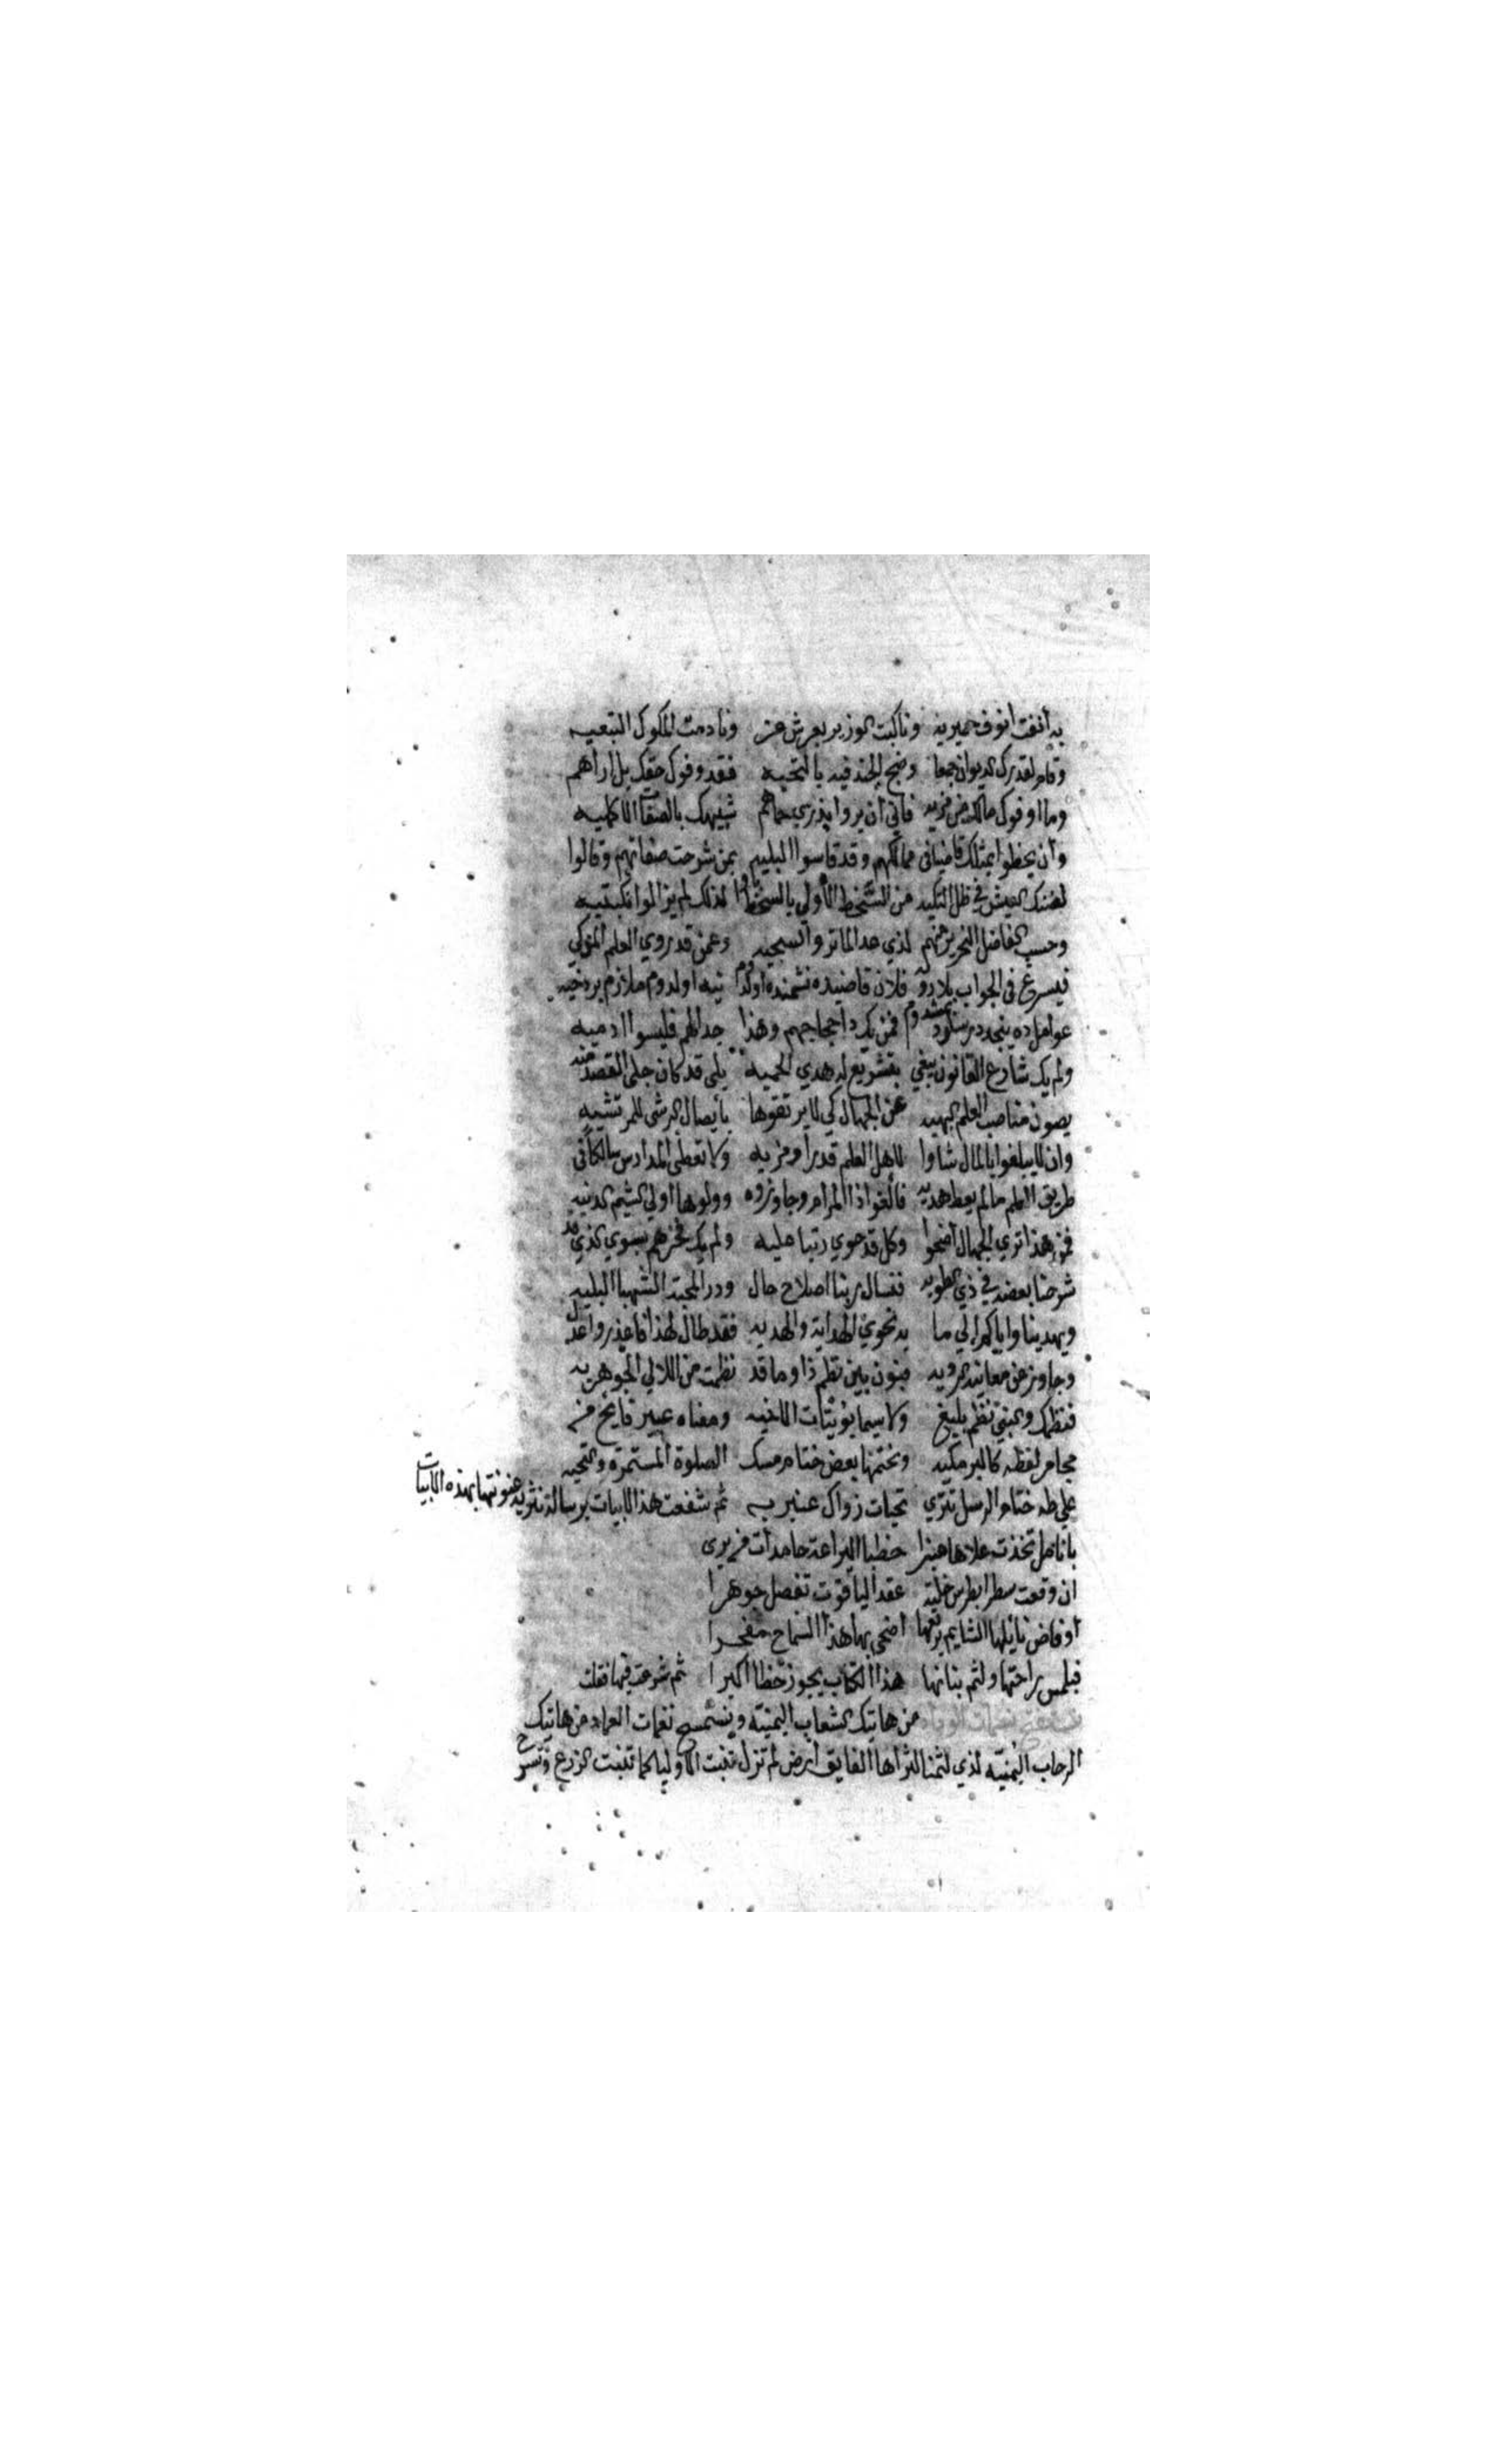 به أنفت انوف حميريه وناكبت الوزير بعرش عز ونادمت الملوك التبعيه
وقام لقدرك الديوان جمعا وضج الجند فيه بالتحيه فقد وفوك حقك بل اراهم
وما اوفوك مالك من مزيه فاني أن يروا بذري حماهم شبيهك بالصفات الاكمليه
وأن يحظوا بمثلك قاضيا في ممالكهم وقد قاسوا البليه بمن شرحت صفاتهم وقالوا
لضنك العيش في ظل من الشخط الأولي لذلك لم يزالوا
وحسب الفاضل النحرير منهم لذي عد المآثر والسجيه وعمن قد روي العلم المزكي
فيسرع في الجواب بلا فلان قاضيده نشمنده اولدم نيه اولدوم ملازم
عوامل ده ينجه در فمن يك ذا حجاجهم وهذا جدالهم فليسوا ادميه
ولم يك شارع القانون يبغي بتشريع له هدي الحميه بلى قد كان جلي القصد منه
يصون مناصب العلم البهيه عن الجهال كي لا يرتقوها بأيصال الرشي للمرتشيه
وان لا يبلغوا بالمال شاوا لاهل العلم قدرا ومزيه ولا تعطي المدارس سالكا في
طريق العلم مالم يعط هديه فالغوا ذا المرام وجاوزوه وولوها اولي الشيم الدنيه
فمن هذا تري الجهال أضحوا وكل قد حوي رتبا عليه ولم يك فخرهم بسوي الذي قد
شرحنا بعضه في ذي الطويه فنسال ربنا اصلاح حال ودرا لمحنة الشهبا البليه
ويهدينا واياكم إلي ما به نحوي الهداية والهديه فقد طال لهذا فاعذر واعدل
وجاوز عن معانيه الرويه فبون بين نظم ذا وما قد نظمت من اللالي الجوهريه
فنظمك والمبني نظم بليغ ولا سيما بؤيتات الاخيه ومعناه عبير فايح من
مجامر لفظه كالبر مكيه ونختمها بعض ختام مسك الصلوة المستمرة والتحيه
علي طه ختام الرسل تتري تحيات زواك عنبريه ثم شفعت هذا الابيات برسالة نثريه عنونتها بهذه الابيات
بانامل تخذت علاها منبرا خطبا اليراعة حامدات
ان وقعت سطرا بطرس خلته عقد الياقوت تفصل جوهرا
أو فاض نايلها الشايم برقها اضحى بها هذا السماح مفجرا
فبلمس راحتها ولثم بنانها هذا الكتاب يحوز حظا اكبرا ثم شرعت فيها فقلت
من هاتيك الشعاب اليمنيه ويستمنح نغمات العماد من هاتيك
الرحاب اليمنيه لذي لثمنا لثراها الفايق ارض لم تزل تنبت الاوليا كما تنبت الزرع